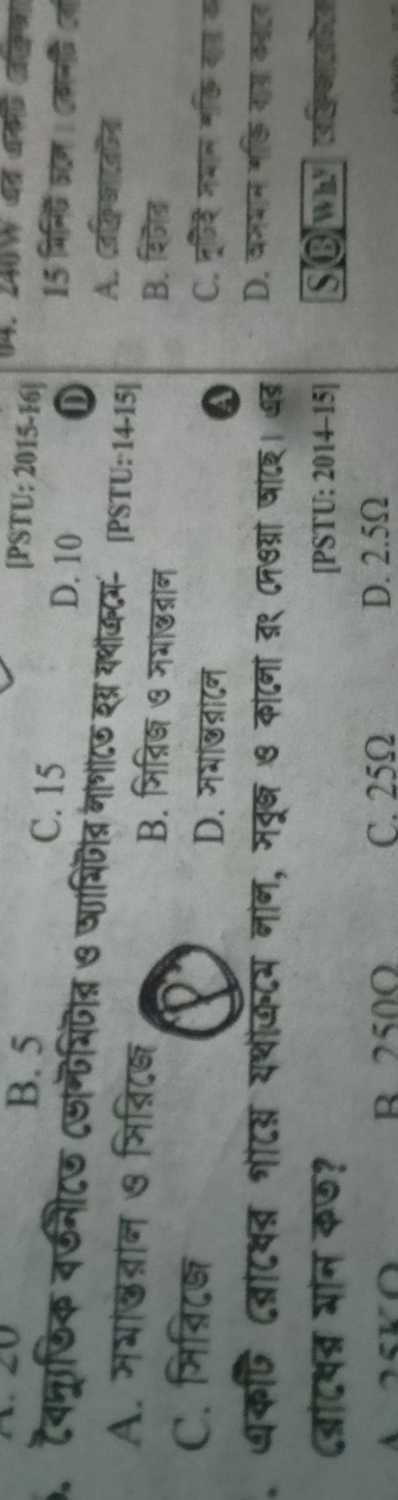 A. 20 B. 5 C. 15 D. 10 [PSTU: 2015-16] D
বৈদ্যুতিক বর্তনীতে ভোল্টমিটার ও অ্যামিটার লাগাতে হয় যথাক্রমে- [PSTU: 14-15]
A. সমান্তরাল ও সিরিজে B. সিরিজ ও সমান্তরাল
C. সিরিজে D. সমান্তরালে A
একটি রোধের গায়ে যথাক্রমে লাল, সবুজ ও কালো রং দেওয়া আছে। এর
রোধের মান কত? [PSTU: 2014-15]
A. 25KΩ B. 250Ω C. 25Ω D. 2.5Ω
04. 240W এর একটি
15 মিনিট চলে। কোনটি
A. রেফ্রিজারেটর
B. হিটার
C. দুটিই সমান শক্তি ব্যয়
D. অসমান শক্তি ব্যয় করবে
S B Why